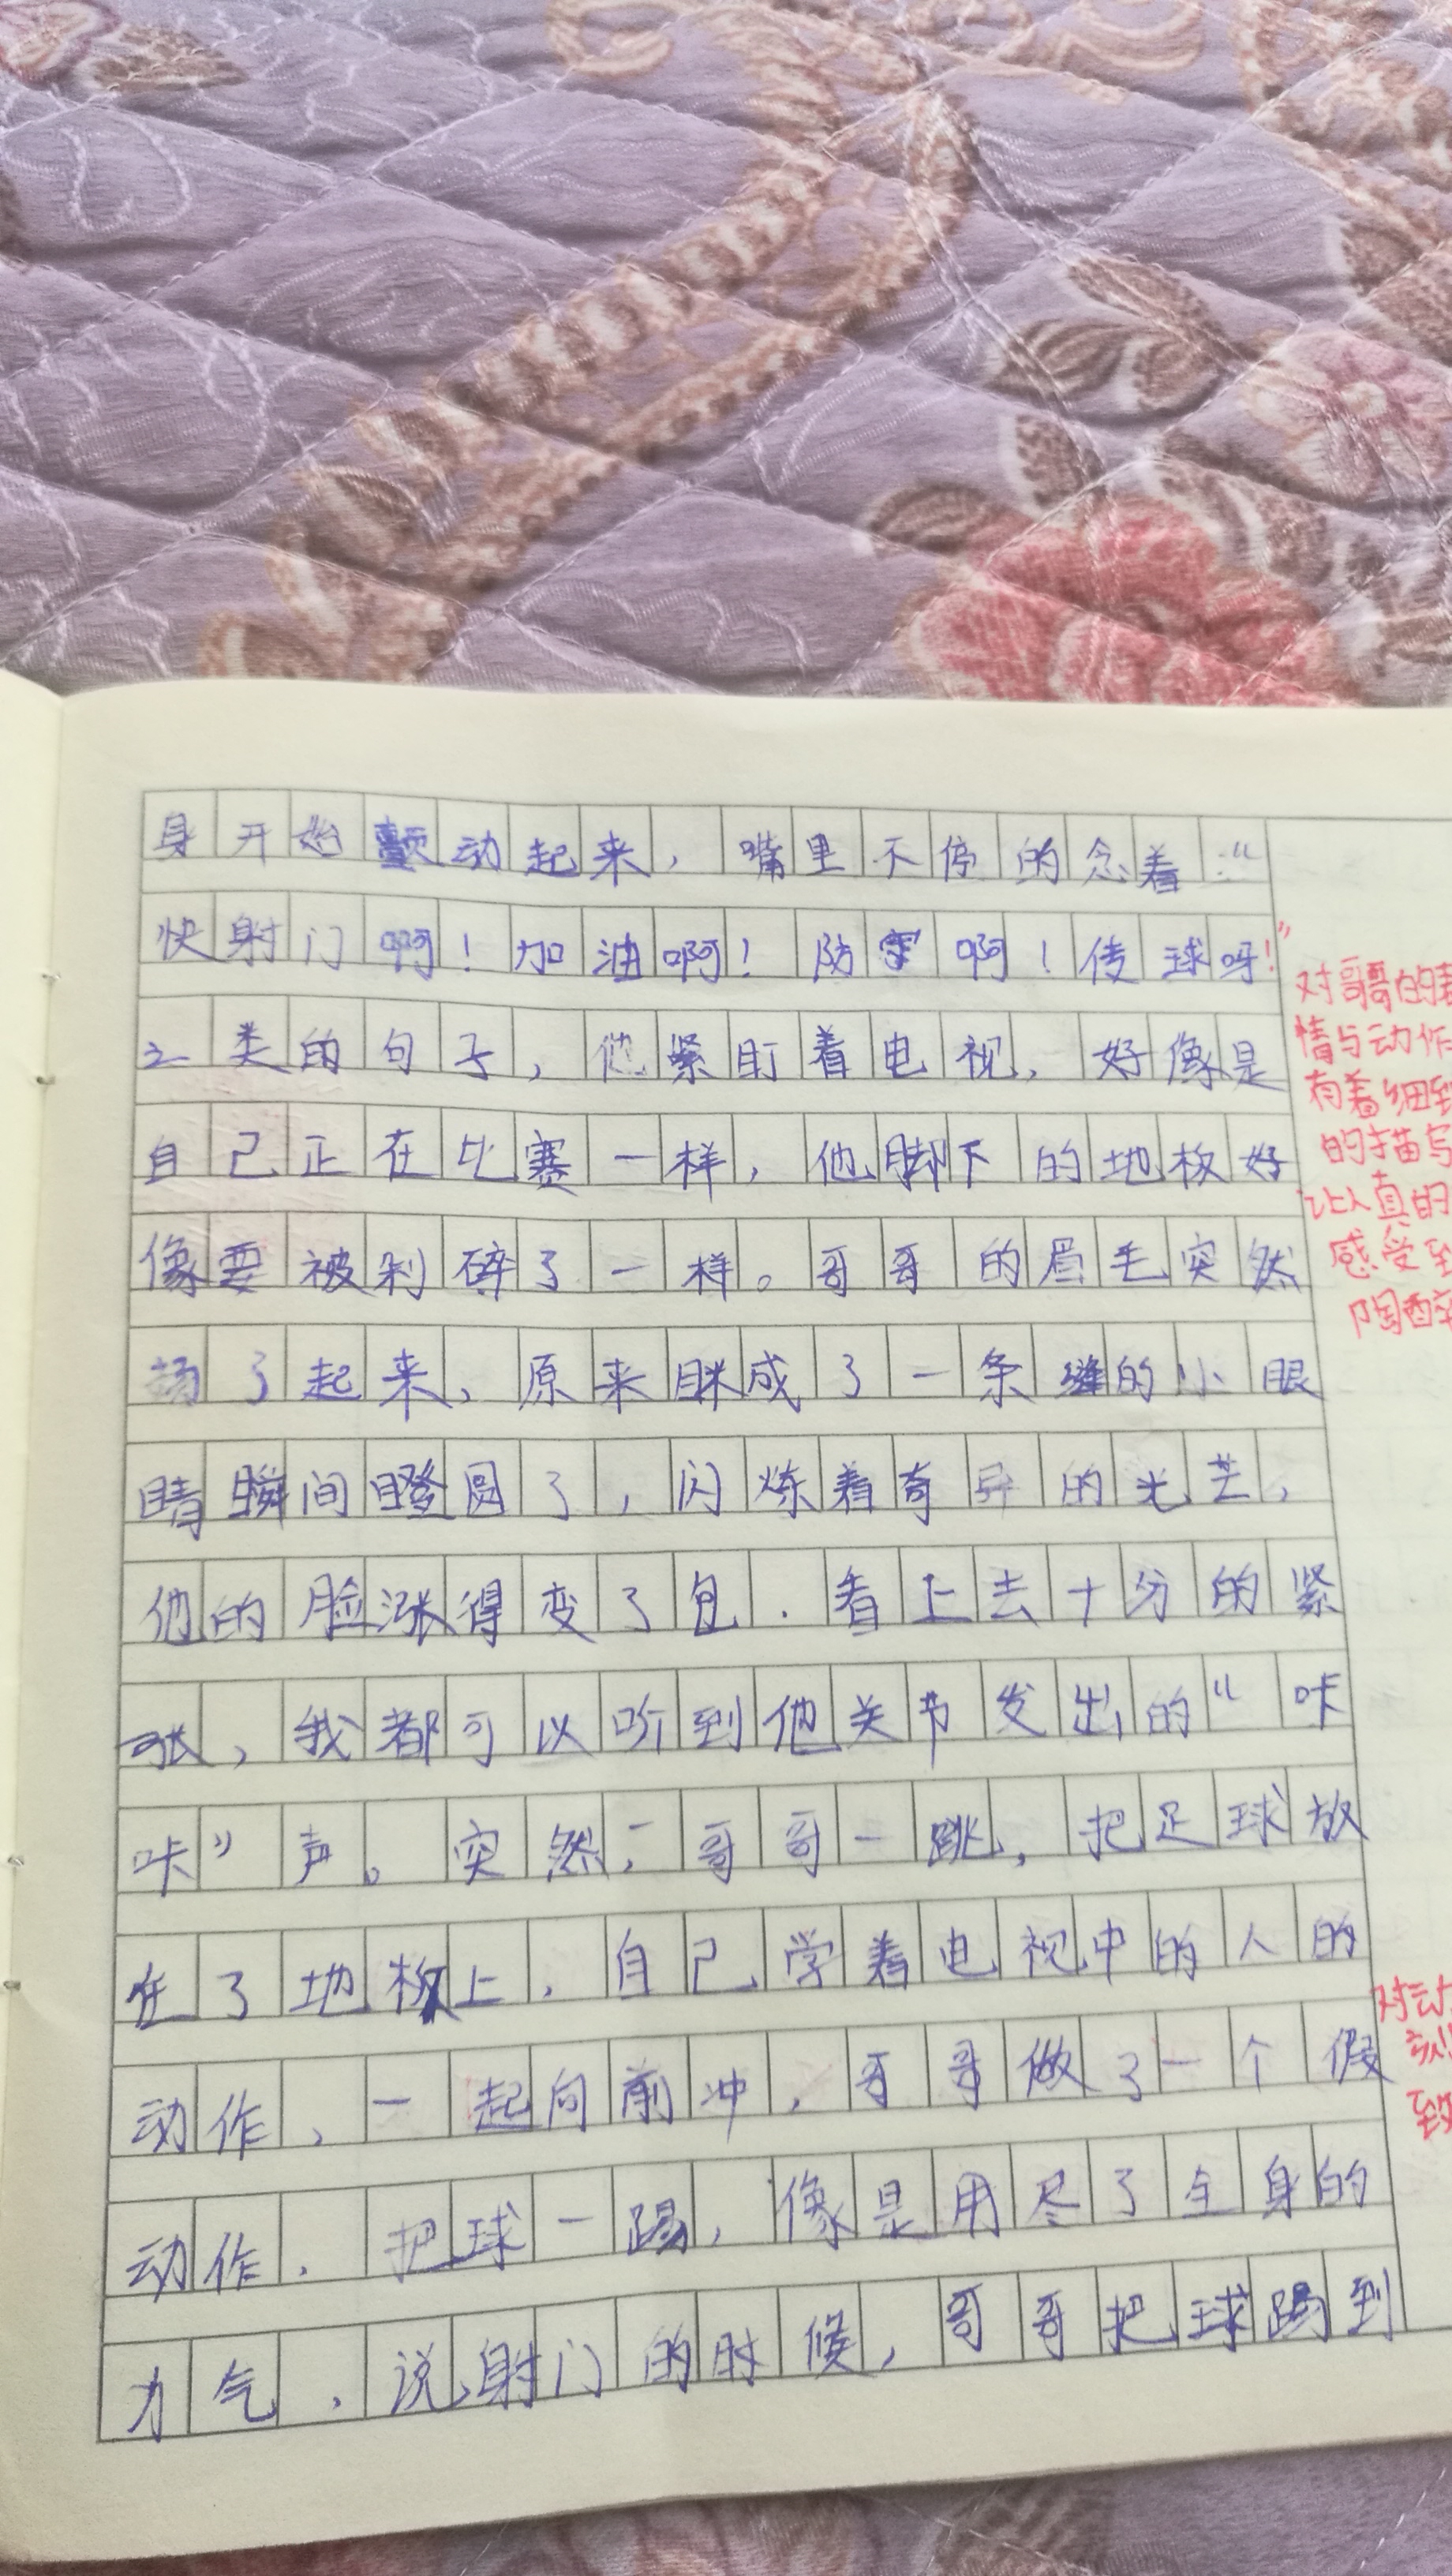 身开始颤动起来，嘴里不停的念着：“
快射门啊！加油啊！防守啊！传球呀！”
之类的句子，他紧盯着电视，好像是
自己正在比赛一样，他脚下的地板好
像要被剁碎了一样。哥哥的眉毛突然
扬了起来，原来眯成了一条缝的小眼
睛瞬间瞪圆了，闪烁着奇异的光芒，
他的脸涨得变了色，看上去十分的紧
张，我都可以听到他关节发出的“咔
咔”声。突然，哥哥一跳，把足球放
在了地板上，自己学着电视中的人的
动作，一起向前冲，哥哥做了一个假
动作，把球一踢，像是用尽了全身的
力气，说射门的时候，哥哥把球踢到
对哥哥的
情与动作
有着细
的描写
让人真的
感受到
陶醉
对